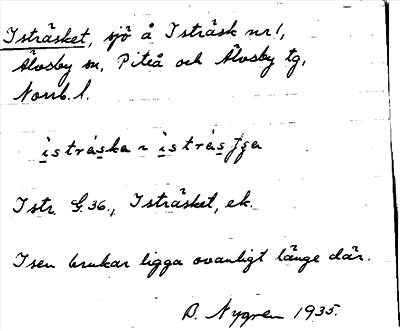 Isträsket, sjö å Isträsk nr 1,
Älvsby sn, Piteå och Älvsby tg,
Norrb. l.
ı̀stráska ~ ı̀strás
Istr. G.36., Isträsket, ek.
Isen brukar ligga ovanligt länge där.
B. Nygren 1935.